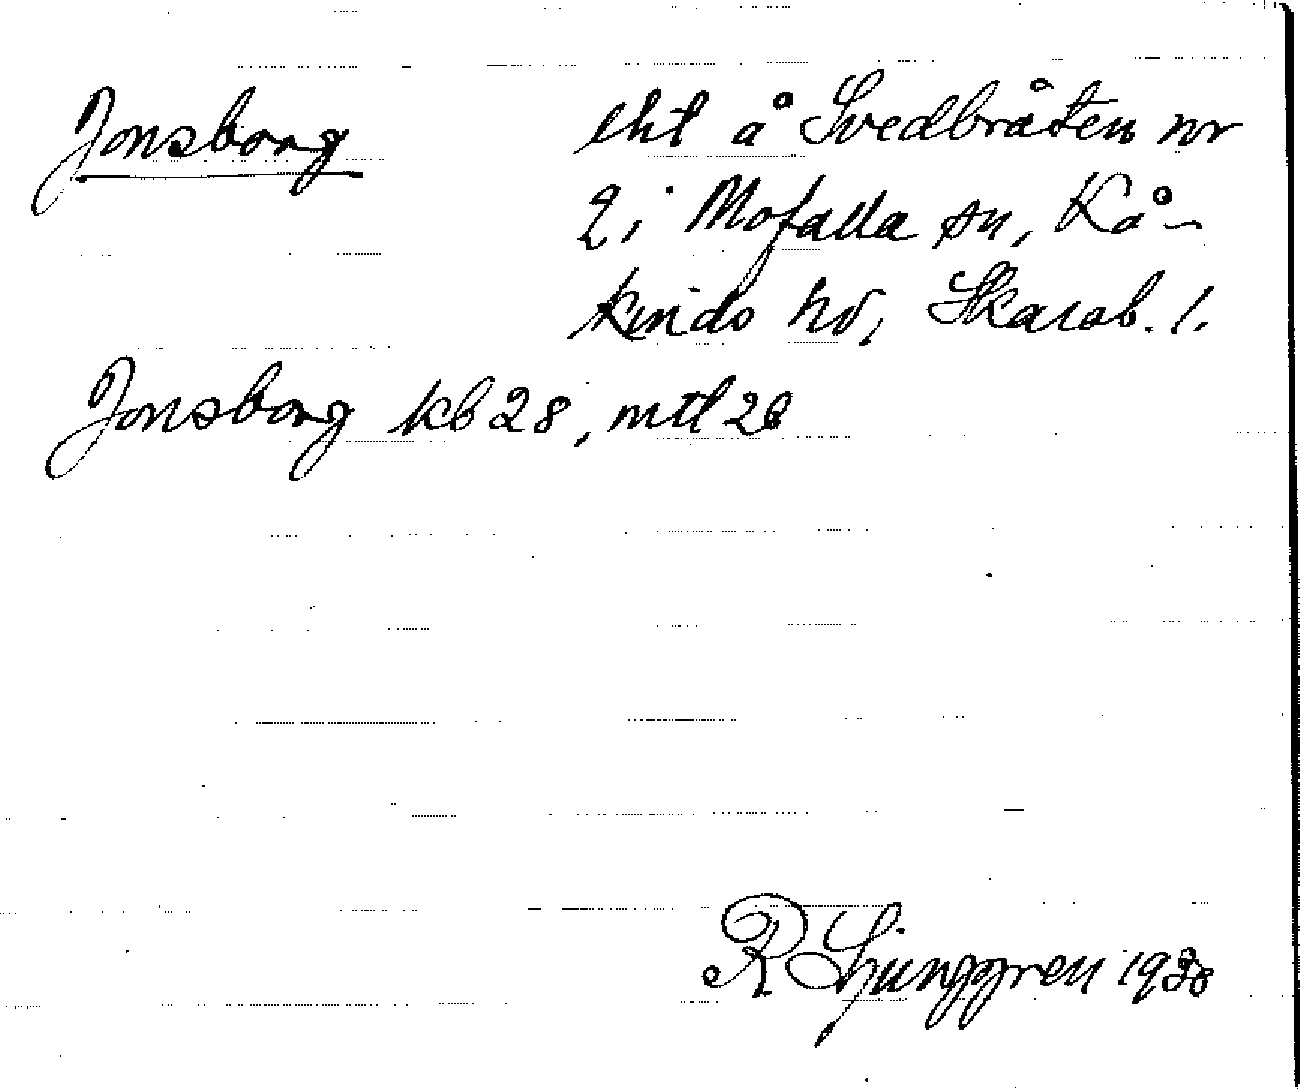 Jonsborg
lht å Svedbråten nr
2 i Mofalla sn, Kå-
kinds hd, Skarab. l.
Jonsborg kb 28, mtl 28
R Ljunggren 1928